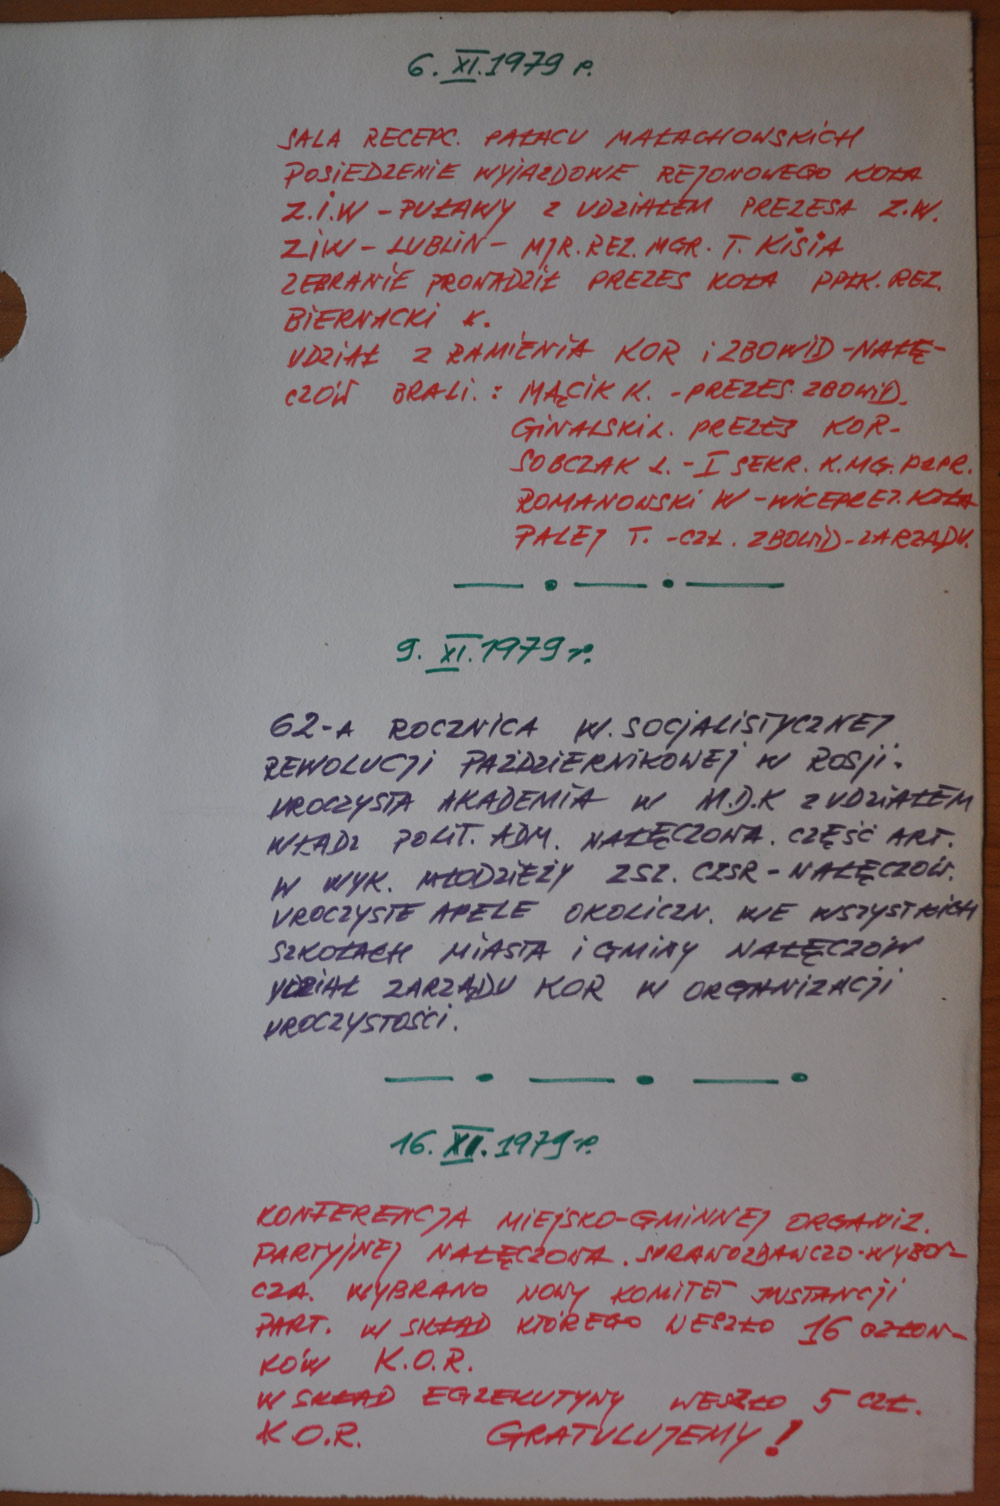 6. XI. 1979 r.
SALA RECEPC. PAŁACU MAŁACHOWSKICH
POSIEDZENIE WYJAZDOWE REJONOWEGO KOŁA
Z.I.W – PUŁAWY Z UDZIAŁEM PREZESA Z.W.
ZIW – LUBLIN – MJR. REZ. MGR. T. KISIA
ZEBRANIE PROWADZIŁ PREZES KOŁA PPŁK. REZ.
BIERNACKI K.
UDZIAŁ Z RAMIENIA KOR i ZBOWID – NAŁĘ-
CZÓW BRALI. : MĄCIK K. – PREZES ZBOWID.
GINALSKI L. PREZES KOR –
SOBCZAK L. – I SEKR. K.MG. PZPR.
ROMANOWSKI W – WICEPREZ. KOŁA
PALEJ T. – CZŁ. ZBOWID – ZARZĄDU.
9. XI. 1979 r.
62-A ROCZNICA W. SOCJALISTYCZNEJ
REWOLUCJI PAŹDZIERNIKOWEJ W ROSJI.
UROCZYSTA AKADEMIA W M.D.K Z UDZIAŁEM
WŁADZ POLIT. ADM. NAŁĘCZOWA. CZĘŚĆ ART.
W WYK. MŁODZIEŻY ZSZ. CZSR – NAŁĘCZÓW.
UROCZYSTE APELE OKOLICZN. WE WSZYSTKICH
SZKOŁACH MIASTA i GMINY NAŁĘCZÓW
UDZIAŁ ZARZĄDU KOR W ORGANIZACJI
UROCZYSTOŚCI.
16. XII. 1979 r.
KONFERENCJA MIEJSKO-GMINNEJ ORGANIZ.
PARTYJNEJ NAŁĘCZOWA. SPRAWOZDAWCZO-WYBOR-
CZA. WYBRANO NOWY KOMITET INSTANCJI
PART. W SKŁAD KTÓREGO WESZŁO 16 CZŁON-
KÓW K.O.R.
W SKŁAD EGZEKUTYWY WESZŁO 5 CZŁ.
K.O.R. GRATULUJEMY!